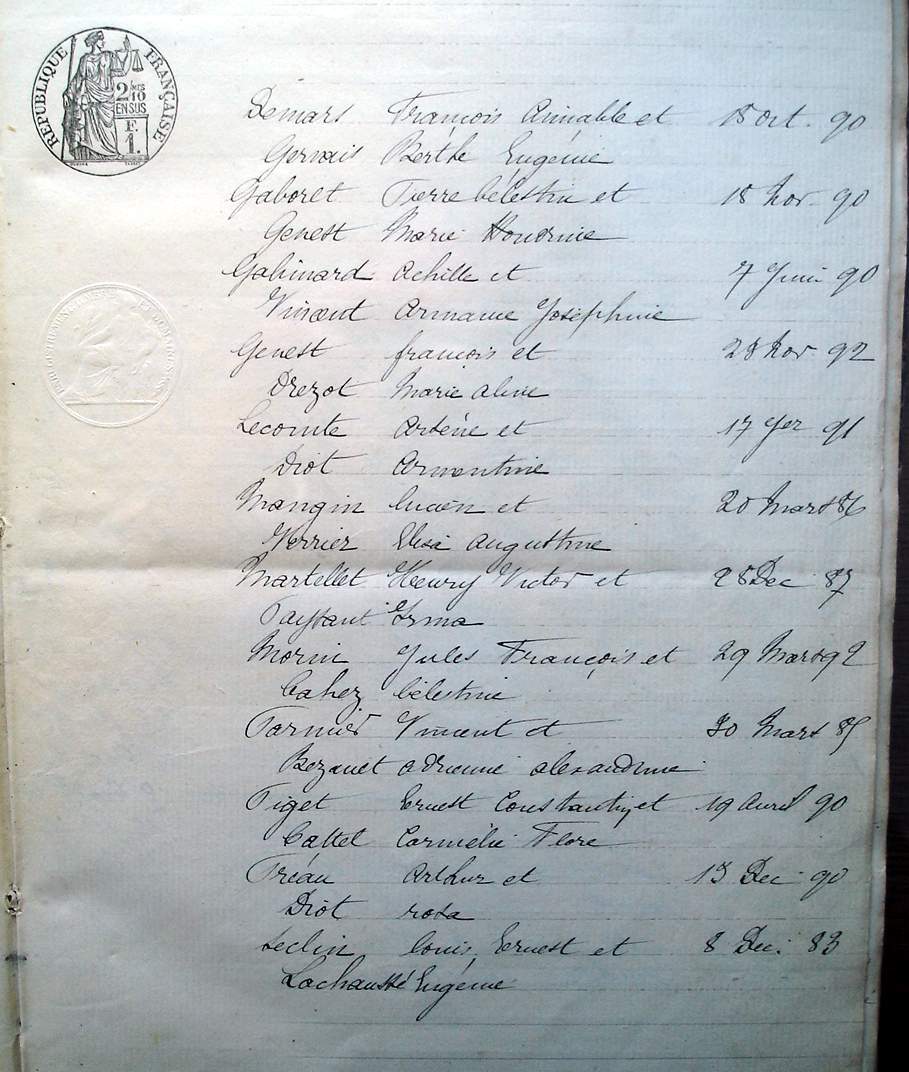 RÉPUBLIQUE FRANÇAISE
2/10 MES
EN SUS
F.
1.
Demars François Aimable et 18 oct. 90
Gervais Berthe Eugénie
Gaboret Pierre Célestin et 18 Nov. 90
Genest Marie
Gahimard Achille et 7 Juin 90
Vincent Armance Joséphine
Genest françois et 28 Nov. 92
Drezot Marie Aline
Lecomte Arsène et 17 90
Diot Armantine
Mangin Lucien et 20 Mars 86
Verrier Elisa Augustine
Martellet Henry Victor et 28 Dec 87
Irma
Morin Jules François et 29 Mars 92
Cahez Célestine
Vincent et 30 Mars 85
Bezanet Adrienne Alexandrine
Piget Ernest Constantin et 19 Avril 90
Cattel Carmélie Flore
Préau Arthur et 13 Dec. 90
Diot rosa
Seclin Louis, Ernest et 8 Dec. 83
Lachaussé Eugénie